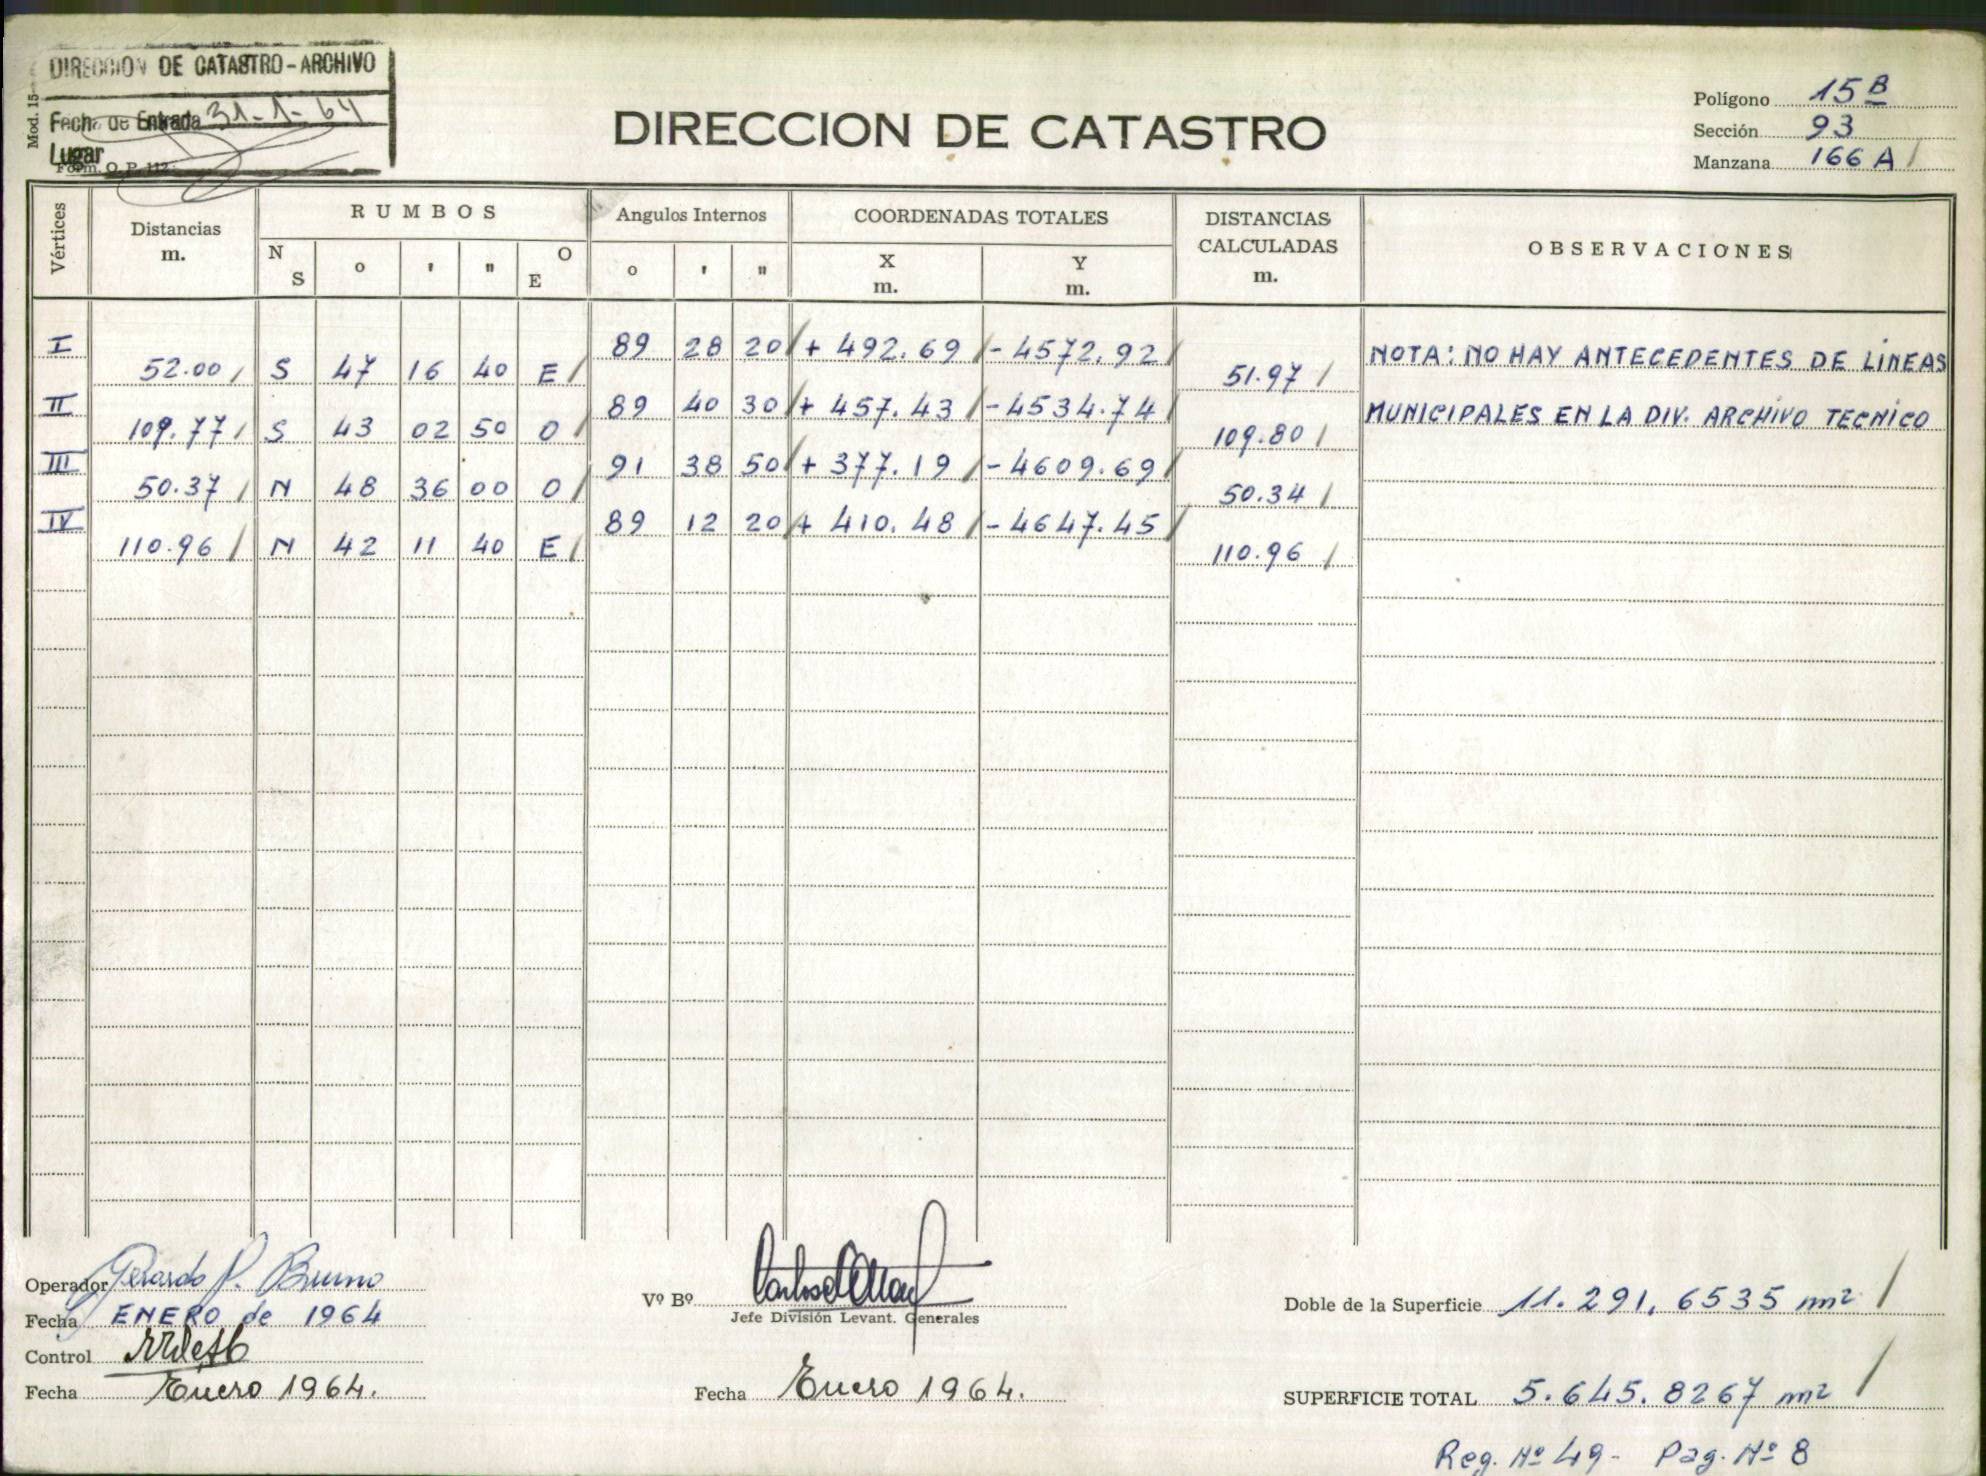 DIRECCION DE CATASTRO - ARCHIVO
Fecha de Entrada 31-1-64
Lugar
Mod. 15
Form. O. P. 112
DIRECCION DE CATASTRO
Polígono 15 B
Sección 93
Manzana 166 A /
Vértices
Distancias m.
RUMBOS
N S ° ' " O E
Angulos Internos
° ' "
COORDENADAS TOTALES
X m. Y m.
DISTANCIAS CALCULADAS m.
OBSERVACIONES
I 89 28 20 / + 492.69 / - 4572.92 / NOTA: NO HAY ANTECEDENTES DE LINEAS
52.00 / S 47 16 40 E / 51.97 /
II 89 40 30 / + 457.43 / - 4534.74 / MUNICIPALES EN LA DIV. ARCHIVO TECNICO
109.77 / S 43 02 50 O / 109.80 /
III 91 38 50 / + 377.19 / - 4609.69 /
50.37 / N 48 36 00 O / 50.34 /
IV 89 12 20 / + 410.48 / - 4647.45 /
110.96 / N 42 11 40 E / 110.96 /
Operador Gerardo P. Bruno
Fecha ENERO de 1964
Control
Fecha Enero 1964.
Vº Bº
Jefe División Levant. Generales
Fecha Enero 1964.
Doble de la Superficie 11.291,6535 m² /
SUPERFICIE TOTAL 5.645.8267 m² /
Reg. Nº 49- Pag. Nº 8